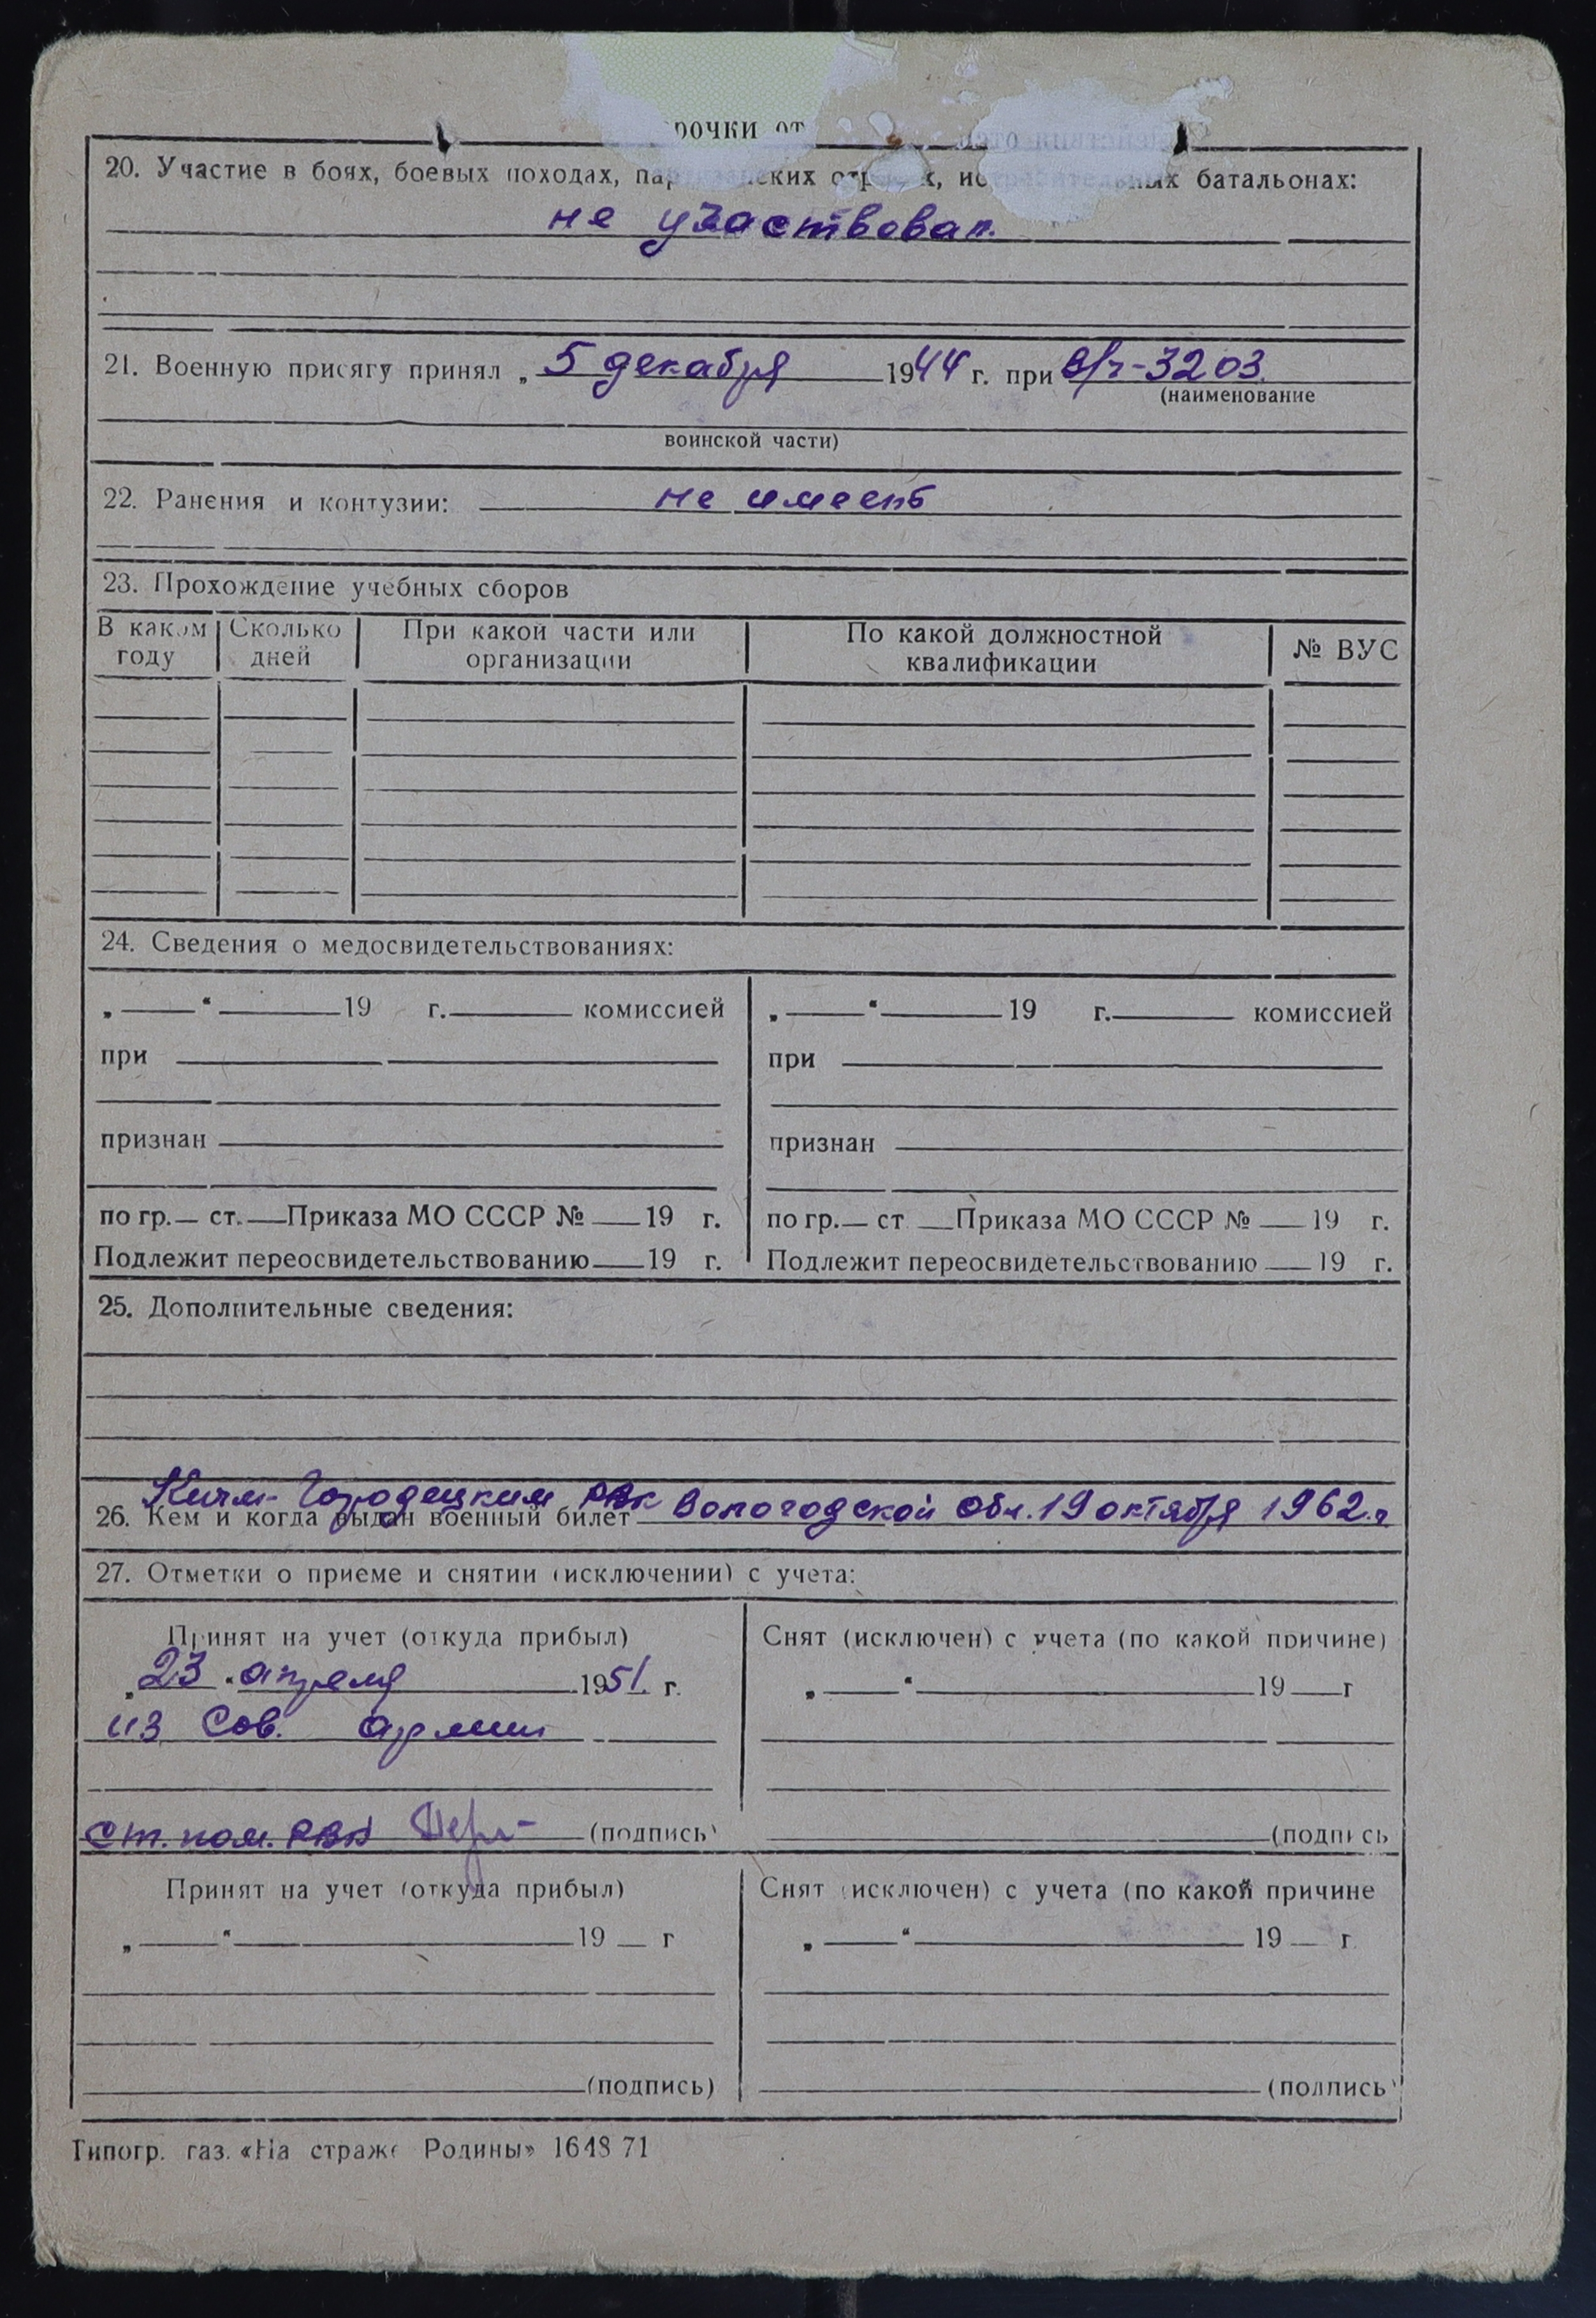 рочки от
20. Участие в боях, боевых походах, пар ских отр х, ис ных батальонах:
не участвовал.
21. Военную присягу принял „ 5 декабря 1944 г. при в/ч-3203.
(наименование
воинской части)
22. Ранения и контузии: не имеет
23. Прохождение учебных сборов
В каком году Сколько дней При какой части или организации По какой должностной квалификации № ВУС
24. Сведения о медосвидетельствованиях:
„ “ 19 г. комиссией „ “ 19 г. комиссией
при при
признан признан
по гр. ст. Приказа МО СССР № 19 г. по гр. ст Приказа МО СССР № 19 г.
Подлежит переосвидетельствованию 19 г. Подлежит переосвидетельствованию 19 г.
25. Дополнительные сведения:
Кичм-Городецким РВК Вологодской Обл. 19 октября 1962.г
26. Кем и когда выдан военный билет
27. Отметки о приеме и снятии (исключении) с учета:
Принят на учет (откуда прибыл) Снят (исключен) с учета (по какой причине)
„ 23 “ апреля 1951. г. „ “ 19 г
из Сов. армии
ст. пом. РВК (подпись) (подпись
Принят на учет (откуда прибыл) Снят (исключен) с учета (по какой причине
„ “ 19 г „ “ 19 г
(подпись) (подпись)
Типогр. газ. «На страже Родины» 1648 71